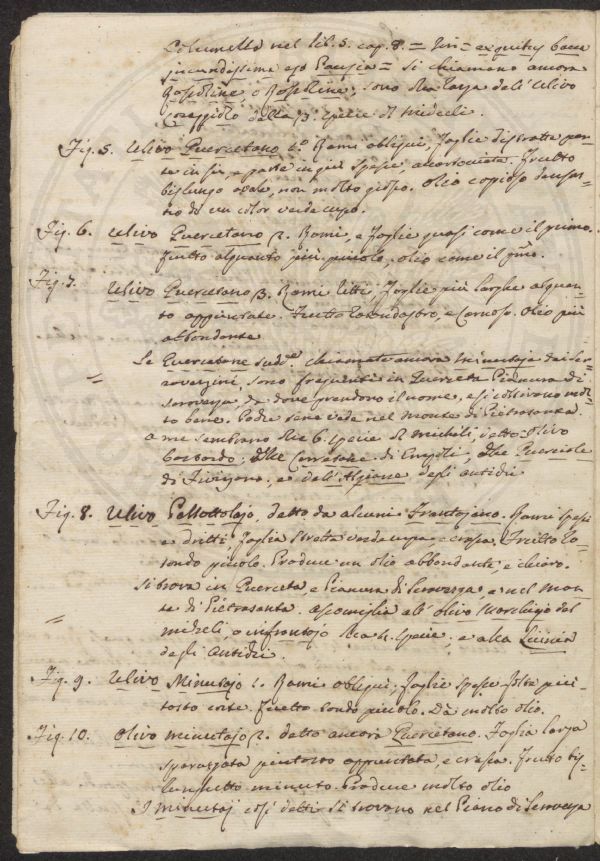 Columella nel lib. 5. cap. 8. = exquisitus bacca
jucundissima est Pausia = si chiamano ancora
Rosseline, o Rosseline; sono della razza dell' Ulivo
Coreggiolo della 3. specie di Micheli.
Fig. 5. Ulivo Quercetano 1.° Rami obliqui, Foglie distratte par
te in su, e parte in giù spesse, accartociate. Frutto
bislungo ovale, non molto grosso. Olio copioso
di un color verde cupo.
Fig. 6. Ulivo Quercetano 2. Rami, e Foglie quasi come il primo.
Frutto alquanto più piccolo, olio come il pmo.
Fig. 7. Ulivo Quercetano 3. Rami fitti, Foglie più larghe alquan
to appuntate. Frutto rotondastro, e Carnoso. Olio più
abbondante
Le Quercetane sudte. chiamate ancora Minutaje dai Se
ravezzini, sono frequenti in Querceta Pianura di
Seravezza, da dove prendono il nome, e si coltivano mol
to bene. Pochi se ne vede nel monte di Pietrasanta.
a me sembrano della 6. specie di Micheli, detto Olivo
Delle Corretane di Empoli, Delle Querciole
di e dell' degli antichi
Fig. 8. Ulivo Pallottolajo, detto da alcuni Frantojano. Rami spessi
e dritti Foglia stretta verde cupa e crespa. Frutto Ro
tondo piccolo. Produce un olio abbondante, e chiaro.
Si trova in Querceta, e Pianura di Seravezza, e nel mon
te di Pietrasanta. Assomiglia all' olivo del
Micheli, o infrantojo della 4. specie, e alla Licinia
degli Antichi.
Fig. 9. Ulivo Minutajo 1. Rami obliqui, Foglie spesse folte piut
tosto corte. Frutto tondo piccolo. Dà molto olio.
Fig. 10. Olivo minutajo 2. detto ancora Quercetano. Foglia larga
sparpagliata piuttosto appuntata e crespa. Frutto bis
lunghetto minuto. Produce molto olio
I minutaj così detti si trovano nel Piano di Seravezza